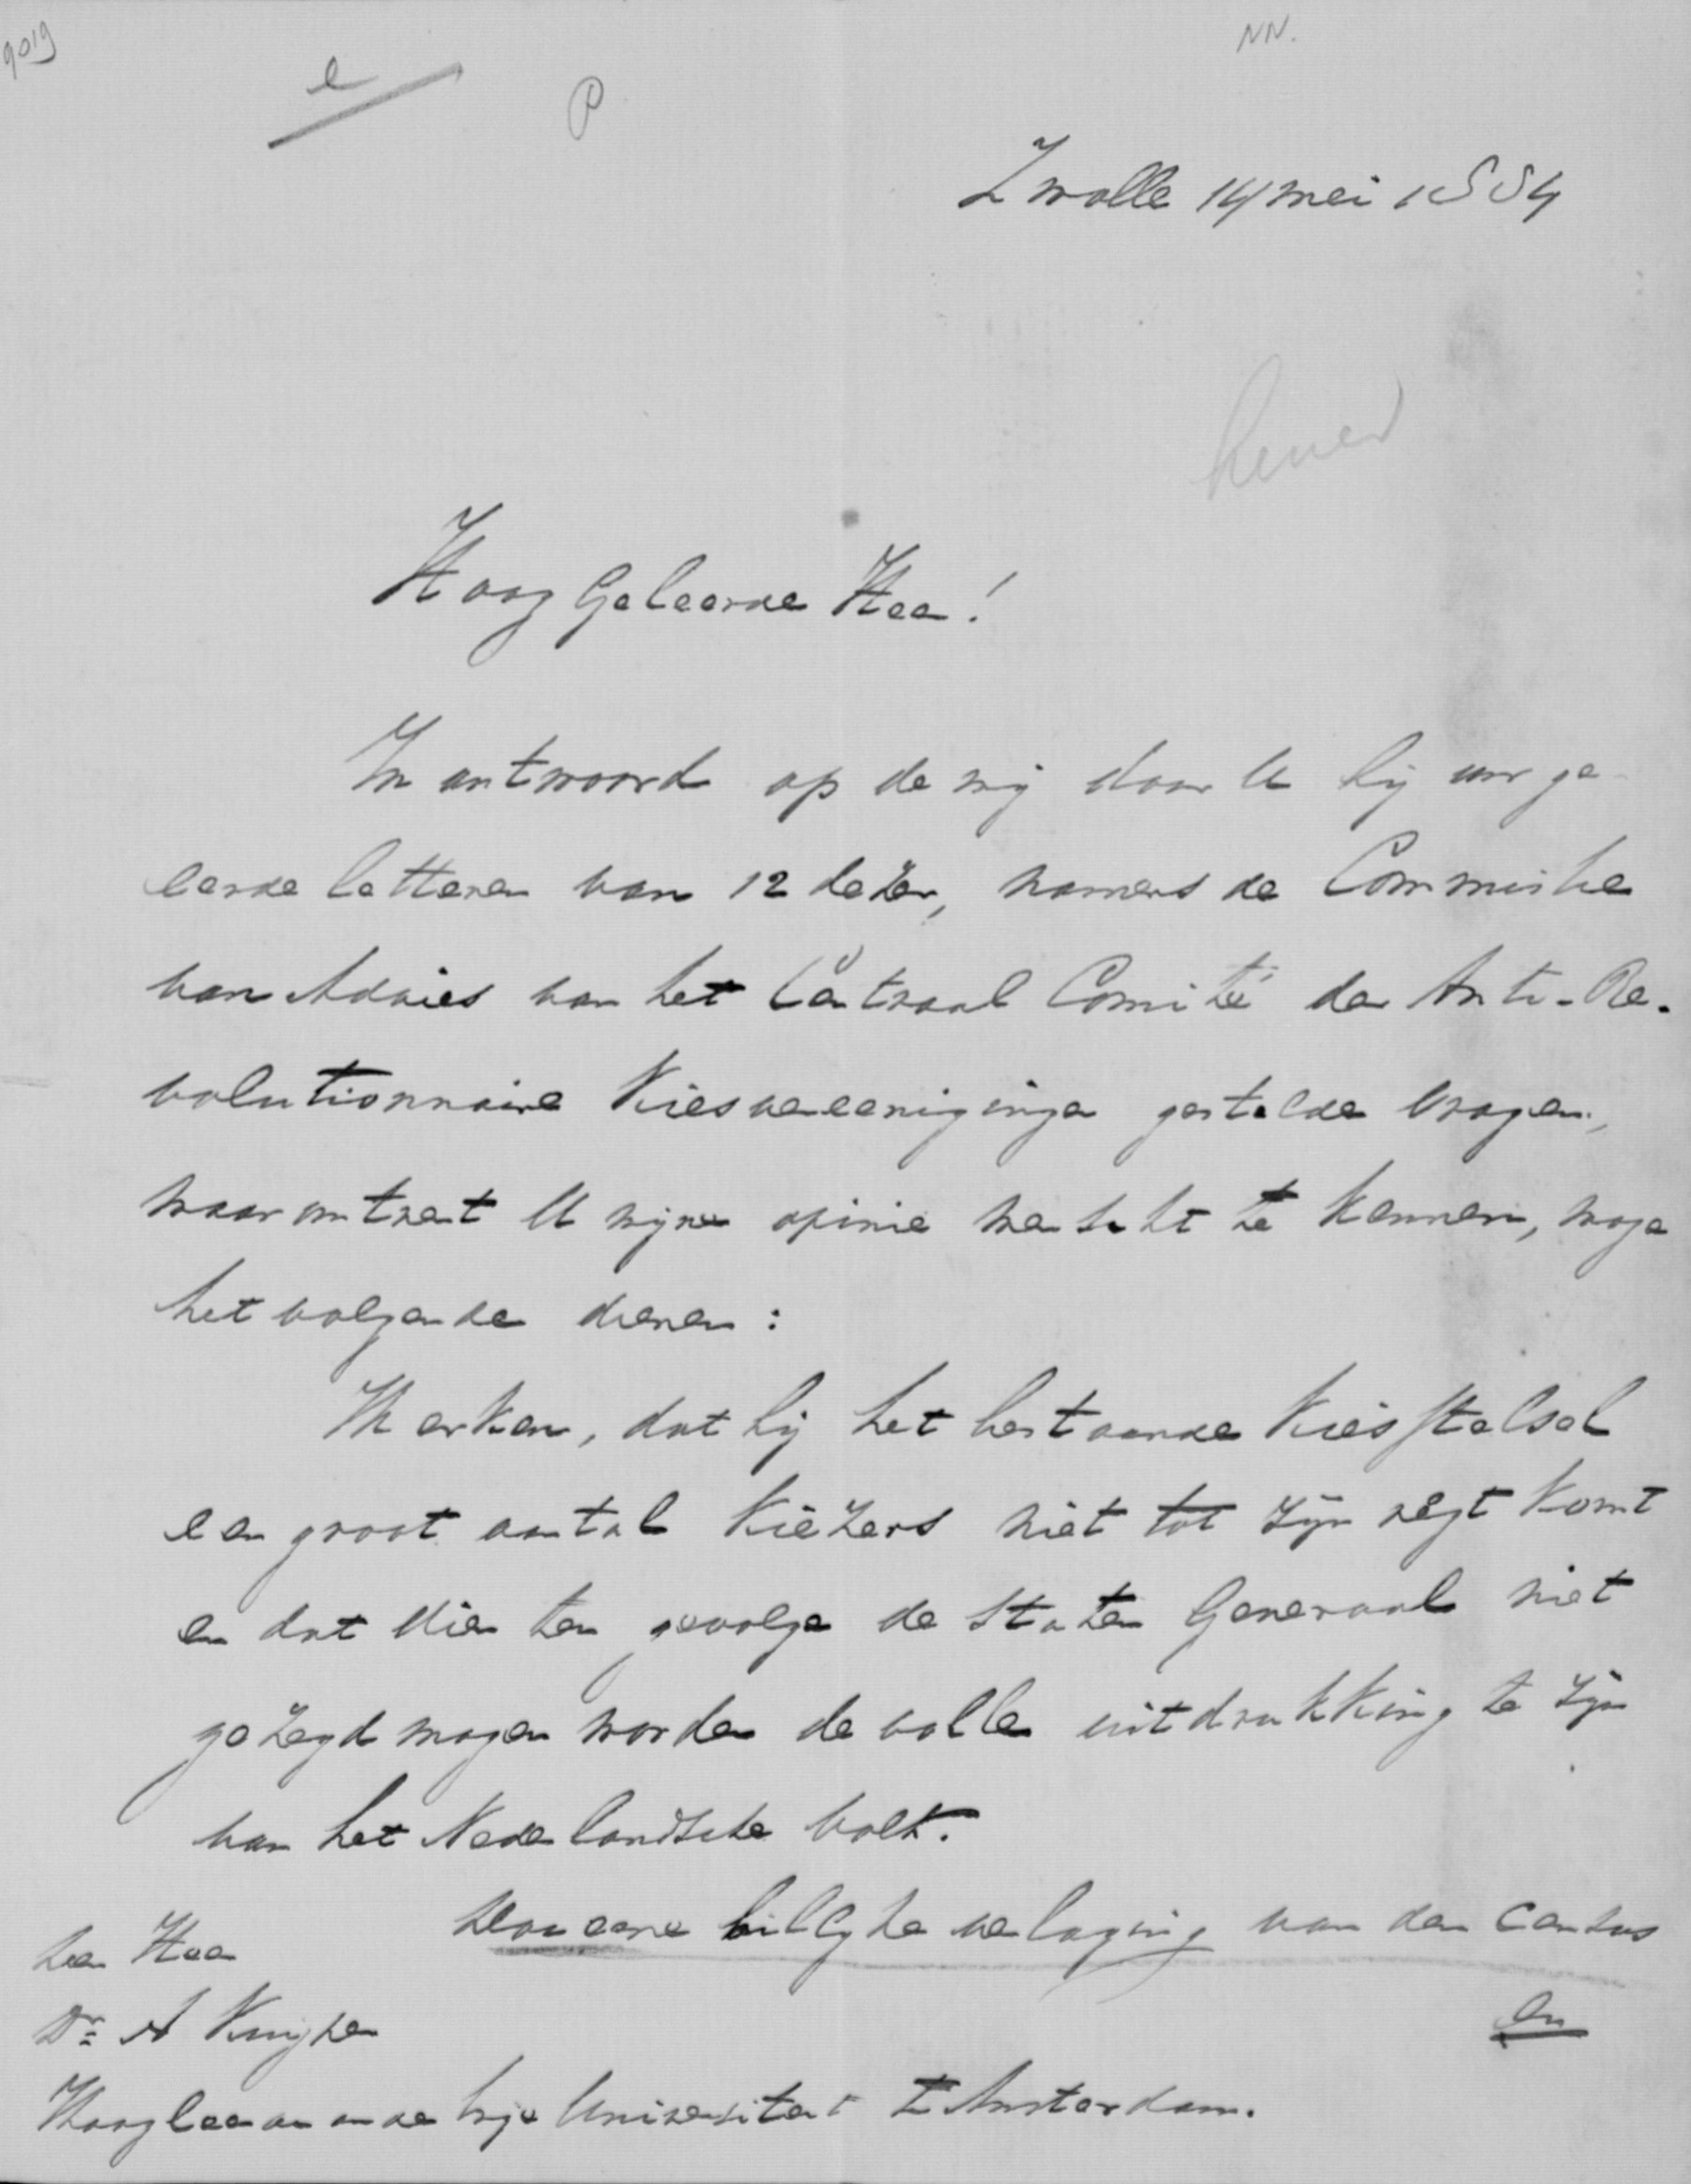 9019
NN.
e
P
Zwolle 14 mei 1884
Hoog Geleerde Heer!
In antwoord op de mij door U bij uw ge
eerde letteren van 12 dezer, namens de Commissie
van Advies van het Centraal Comité der Anti-Re-
volutionnaire Kiesvereenigingen gestelde vragen,
waaromtrent U mijne opinie wenscht te kennen, moge
het volgende dienen:
dat bij het bestaande Kiesstelsel
een groot aantal Kiezers niet tot zijn regt komt
en dat dien ten gevolge de Staten Generaal niet
gezegd mogen worden de volle uitdrukking te zijn
van het Nederlandsche volk.
Door eene billijke verlaging van den census
en
den Heer
Dr A Kuyper
Hoogleeraar aan de Vrije Universiteit te Amsterdam.